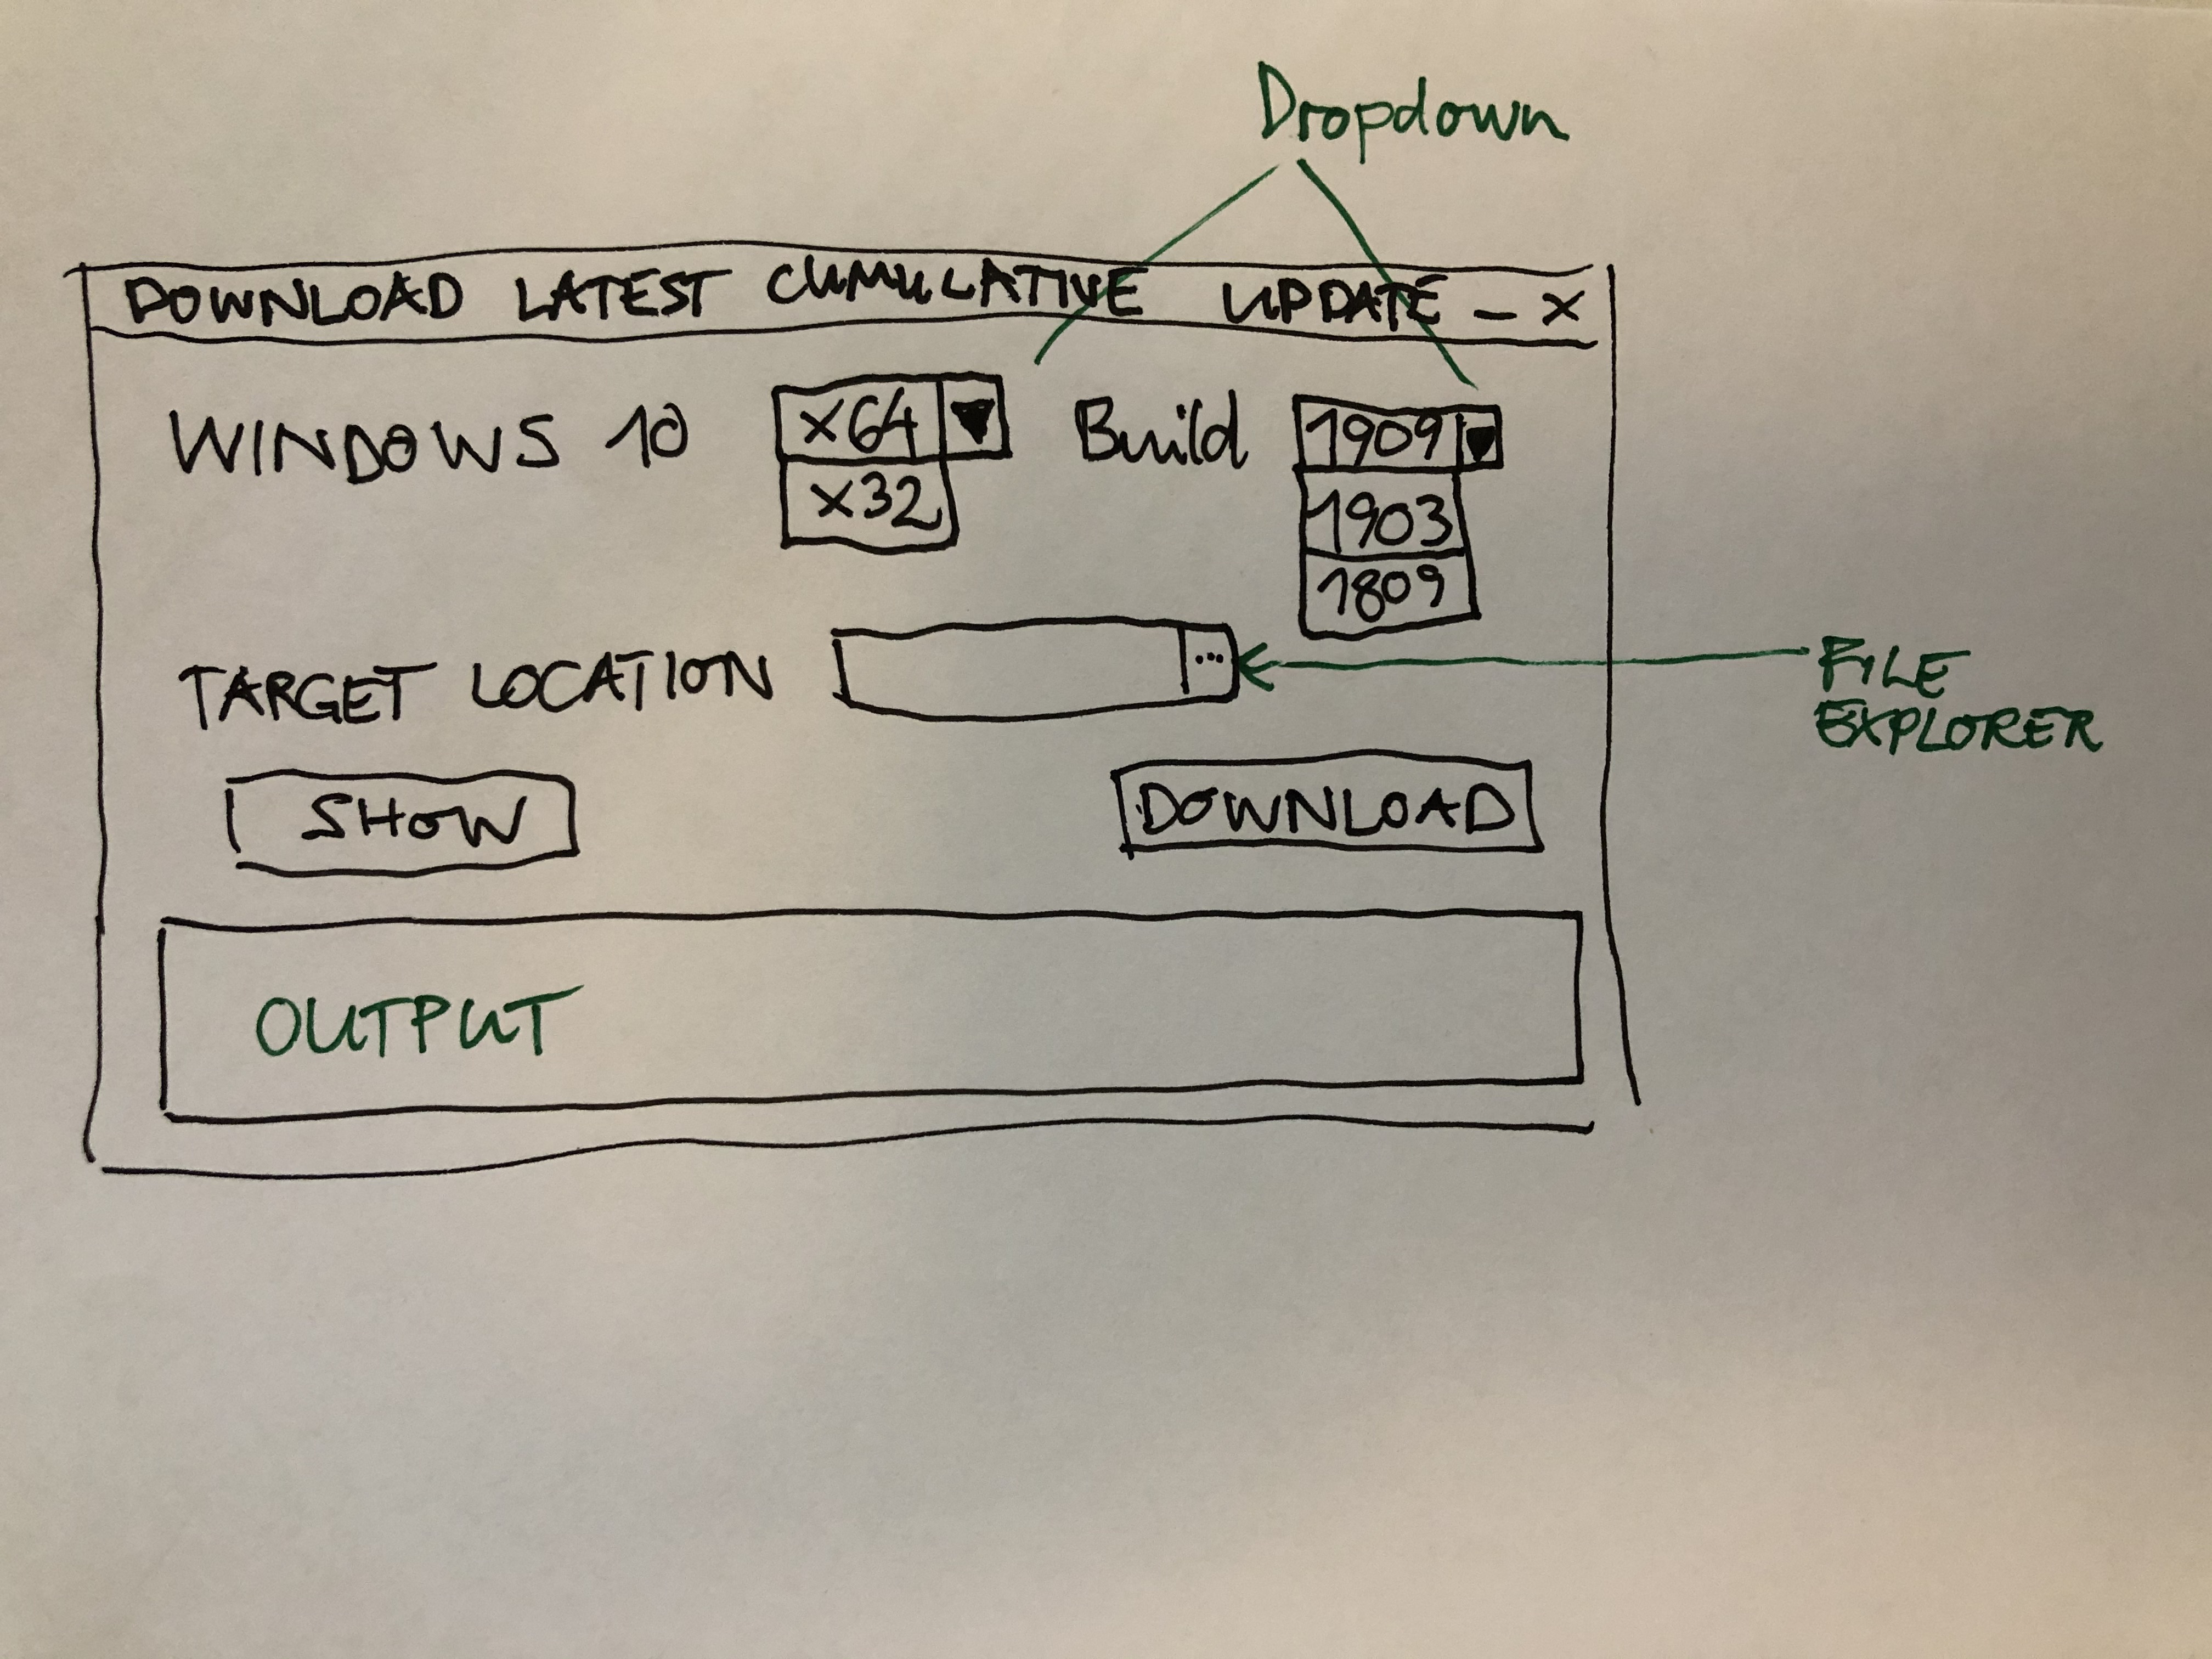 Dropdown
DOWNLOAD LATEST CUMULATIVE UPDATE - X
WINDOWS 10 x64 Build 1909
x32 1903
1809
TARGET LOCATION ...
FILE
EXPLORER
SHOW DOWNLOAD
OUTPUT